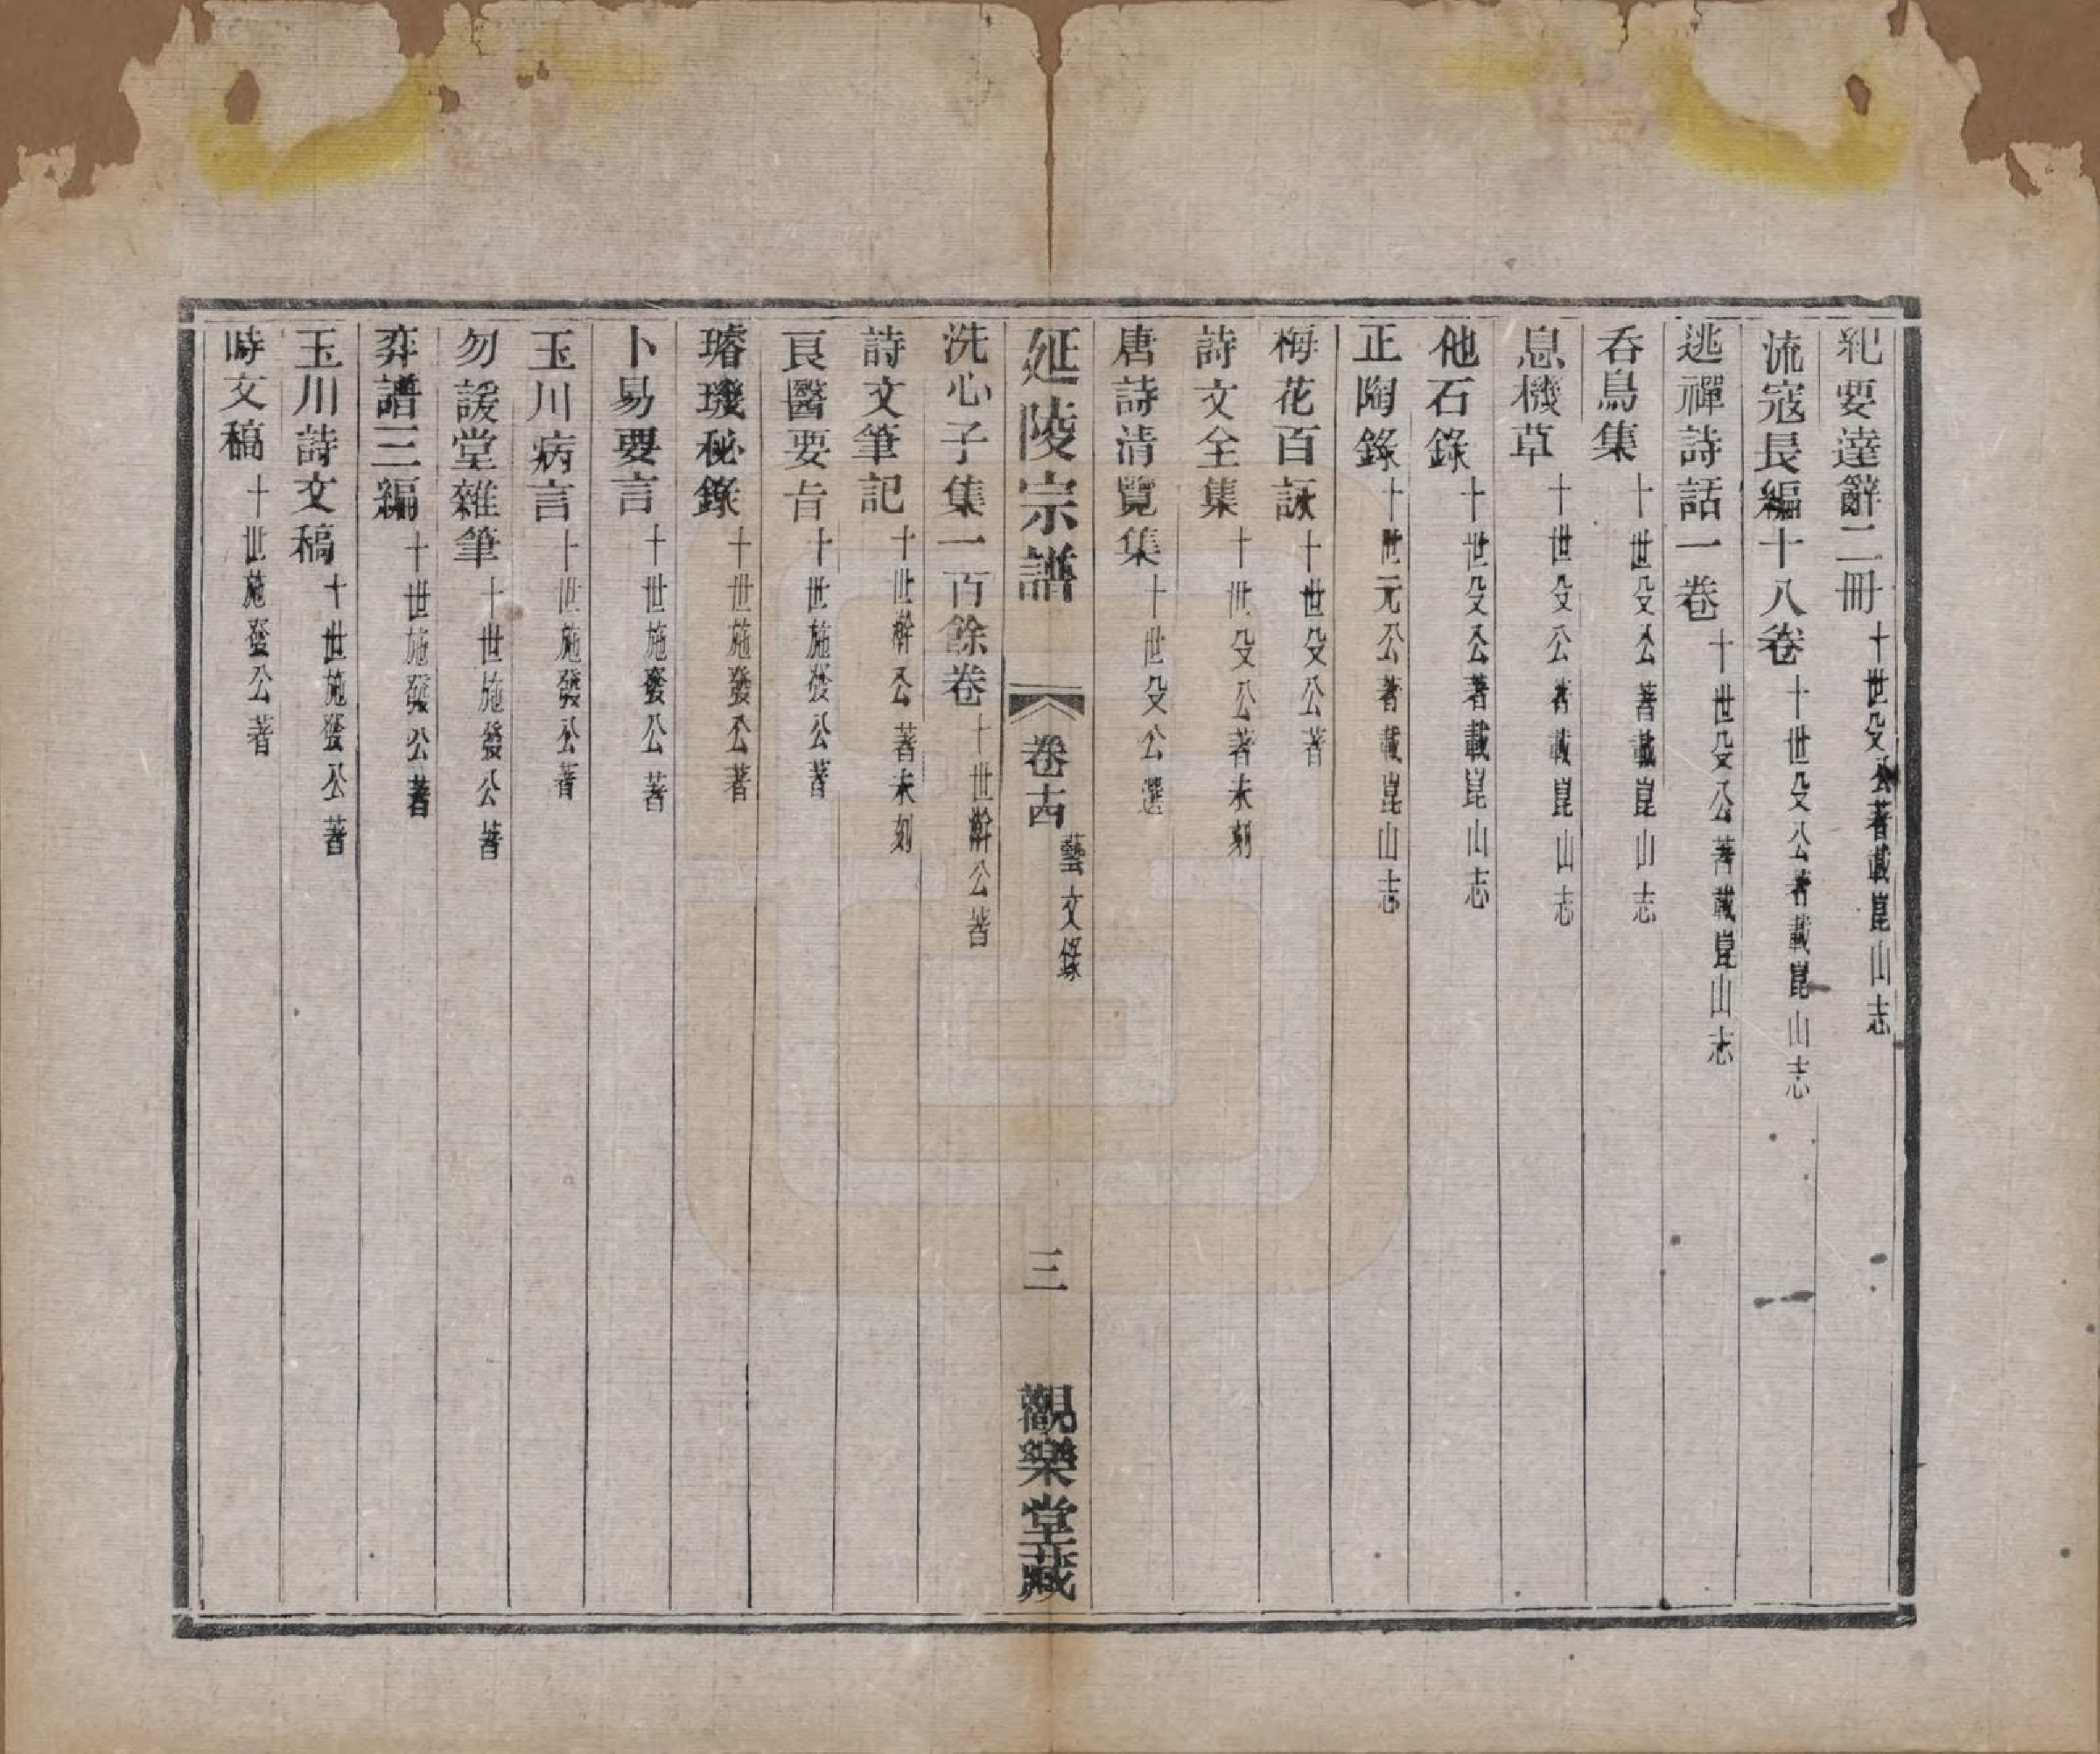 紀要達辭二冊 十世殳公著載崑山志
流寇長編十八卷 十世殳公著載崑山志
逃禪詩話一卷 十世殳公著載崑山志
呑鳥集 十世殳公著載崑山志
息機草 十世殳公著載崑山志
他石錄 十世殳公著載崑山志
正陶錄 十世元公著載崑山志
梅花百詠 十世殳公著
詩文全集 十世殳公著未刻
唐詩清覽集 十世殳公選
延陵宗譜 卷十四 藝文錄 三 觀樂堂藏
洗心子集一百餘卷 十世檊公著
詩文筆記 十世檊公著未刻
良醫要旨 十世施發公著
璿璣秘錄 十世施發公著
卜易要言 十世施發公著
玉川病言 十世施發公著
勿諼堂雜筆 十世施發公著
弈譜三編 十世施發公著
玉川詩文稿 十世施發公著
時文稿 十世施發公著